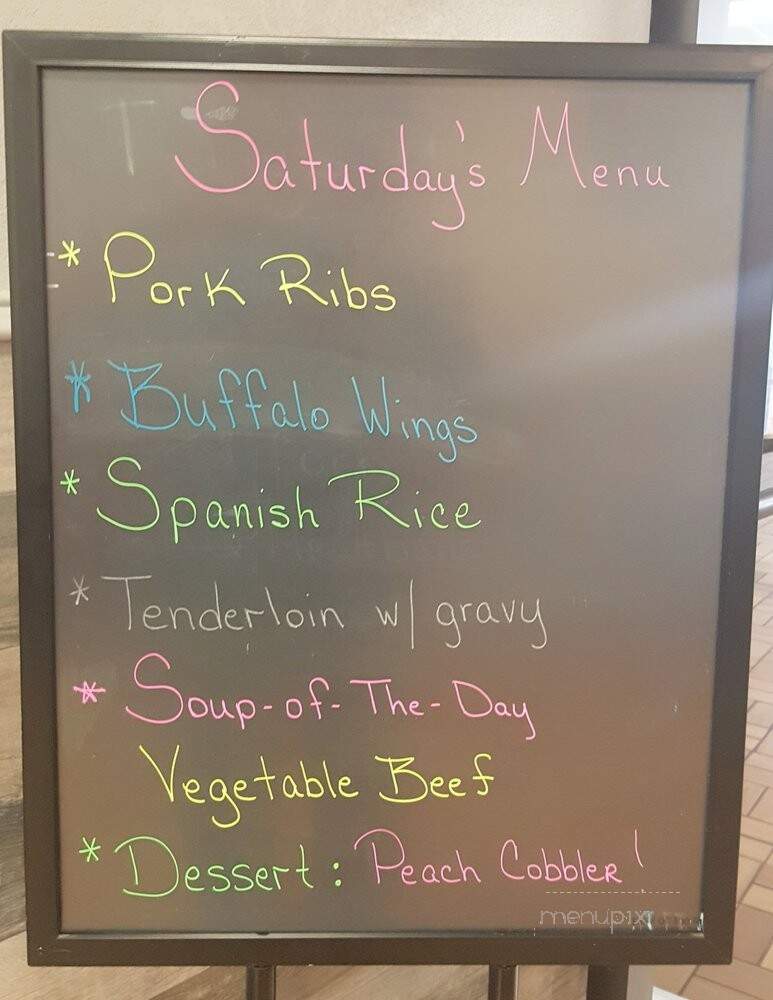 Saturday's Menu
* Pork Ribs
* Buffalo Wings
* Spanish Rice
* Tenderloin w/ gravy
* Soup-of-The-Day
Vegetable Beef
* Dessert: Peach Cobbler!
menupix